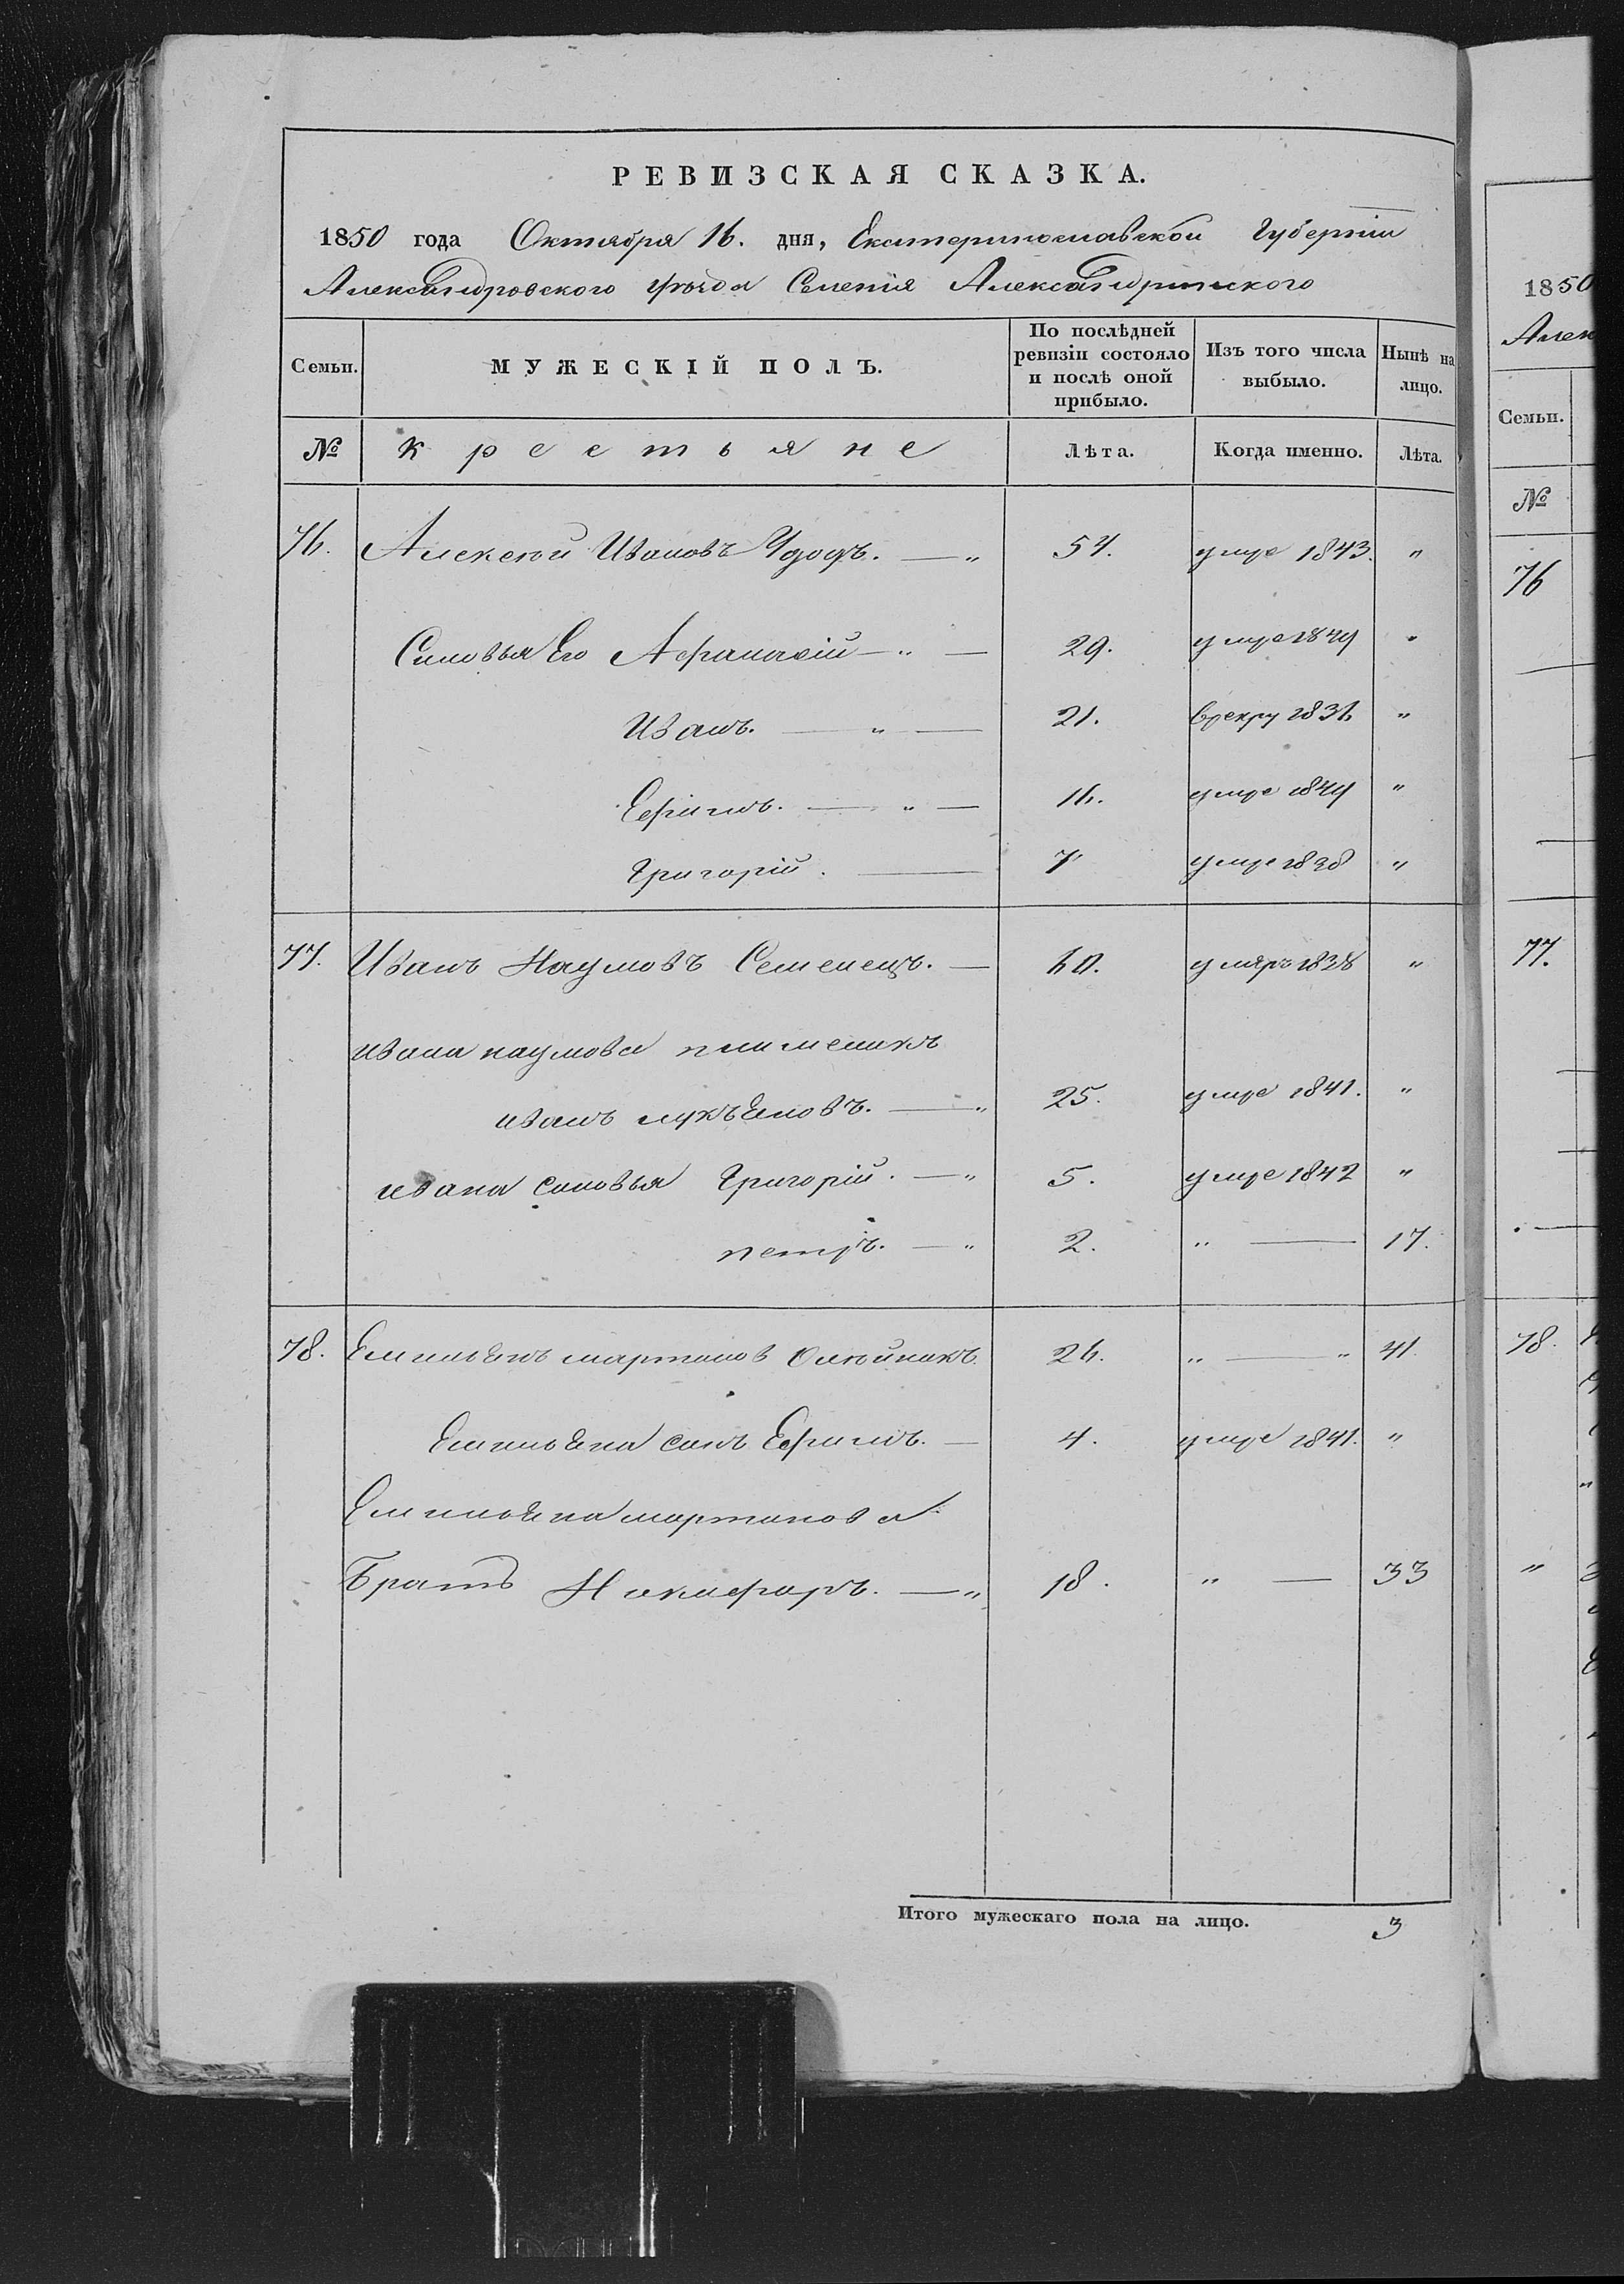 РЕВИЗСКАЯ СКАЗКА.
1850 года Октября 16. дня, Екатеринославской Губерніи
Александровского уѣзда Селенія Александринского
Семьи. МУЖЕСКІЙ ПОЛЪ. По послѣдней ревизіи состояло и послѣ оной прибыло. Изъ того числа выбыло. Нынѣ на лицо.
№ крестьяне Лѣта. Когда именно. Лѣта.
76. Алексѣй Ивановъ Удодъ. — " 57. умре 1843. "
Сыновья Его Афанасій — " — 29. умре 1849 "
Иванъ. — " — 21. врекру 1836 "
Ефимъ. — " — 16. умре 1849 "
Григорій. — 7 умре 1838 "
77. Иванъ Наумовъ Семенецъ. — 60. умръ 1838 "
ивана наумова племеникъ
иванъ лукъЕновъ. — " 25. умре 1841. "
ивана сыновья Григорій. — " 5. умре 1842 "
петръ. — " 2. " — 17.
78. ЕмильЕнъ мартинов Олѣйникъ 26. " — " 41
ЕмильЕна сынъ Ефимъ. — 4. умре 1841. "
ЕмильЕна мартинова
Братъ Никифоръ. — " 18. " — 33
Итого мужескаго пола на лицо. 3
1850
Алек
Семьи.
№
76
77.
78.
"